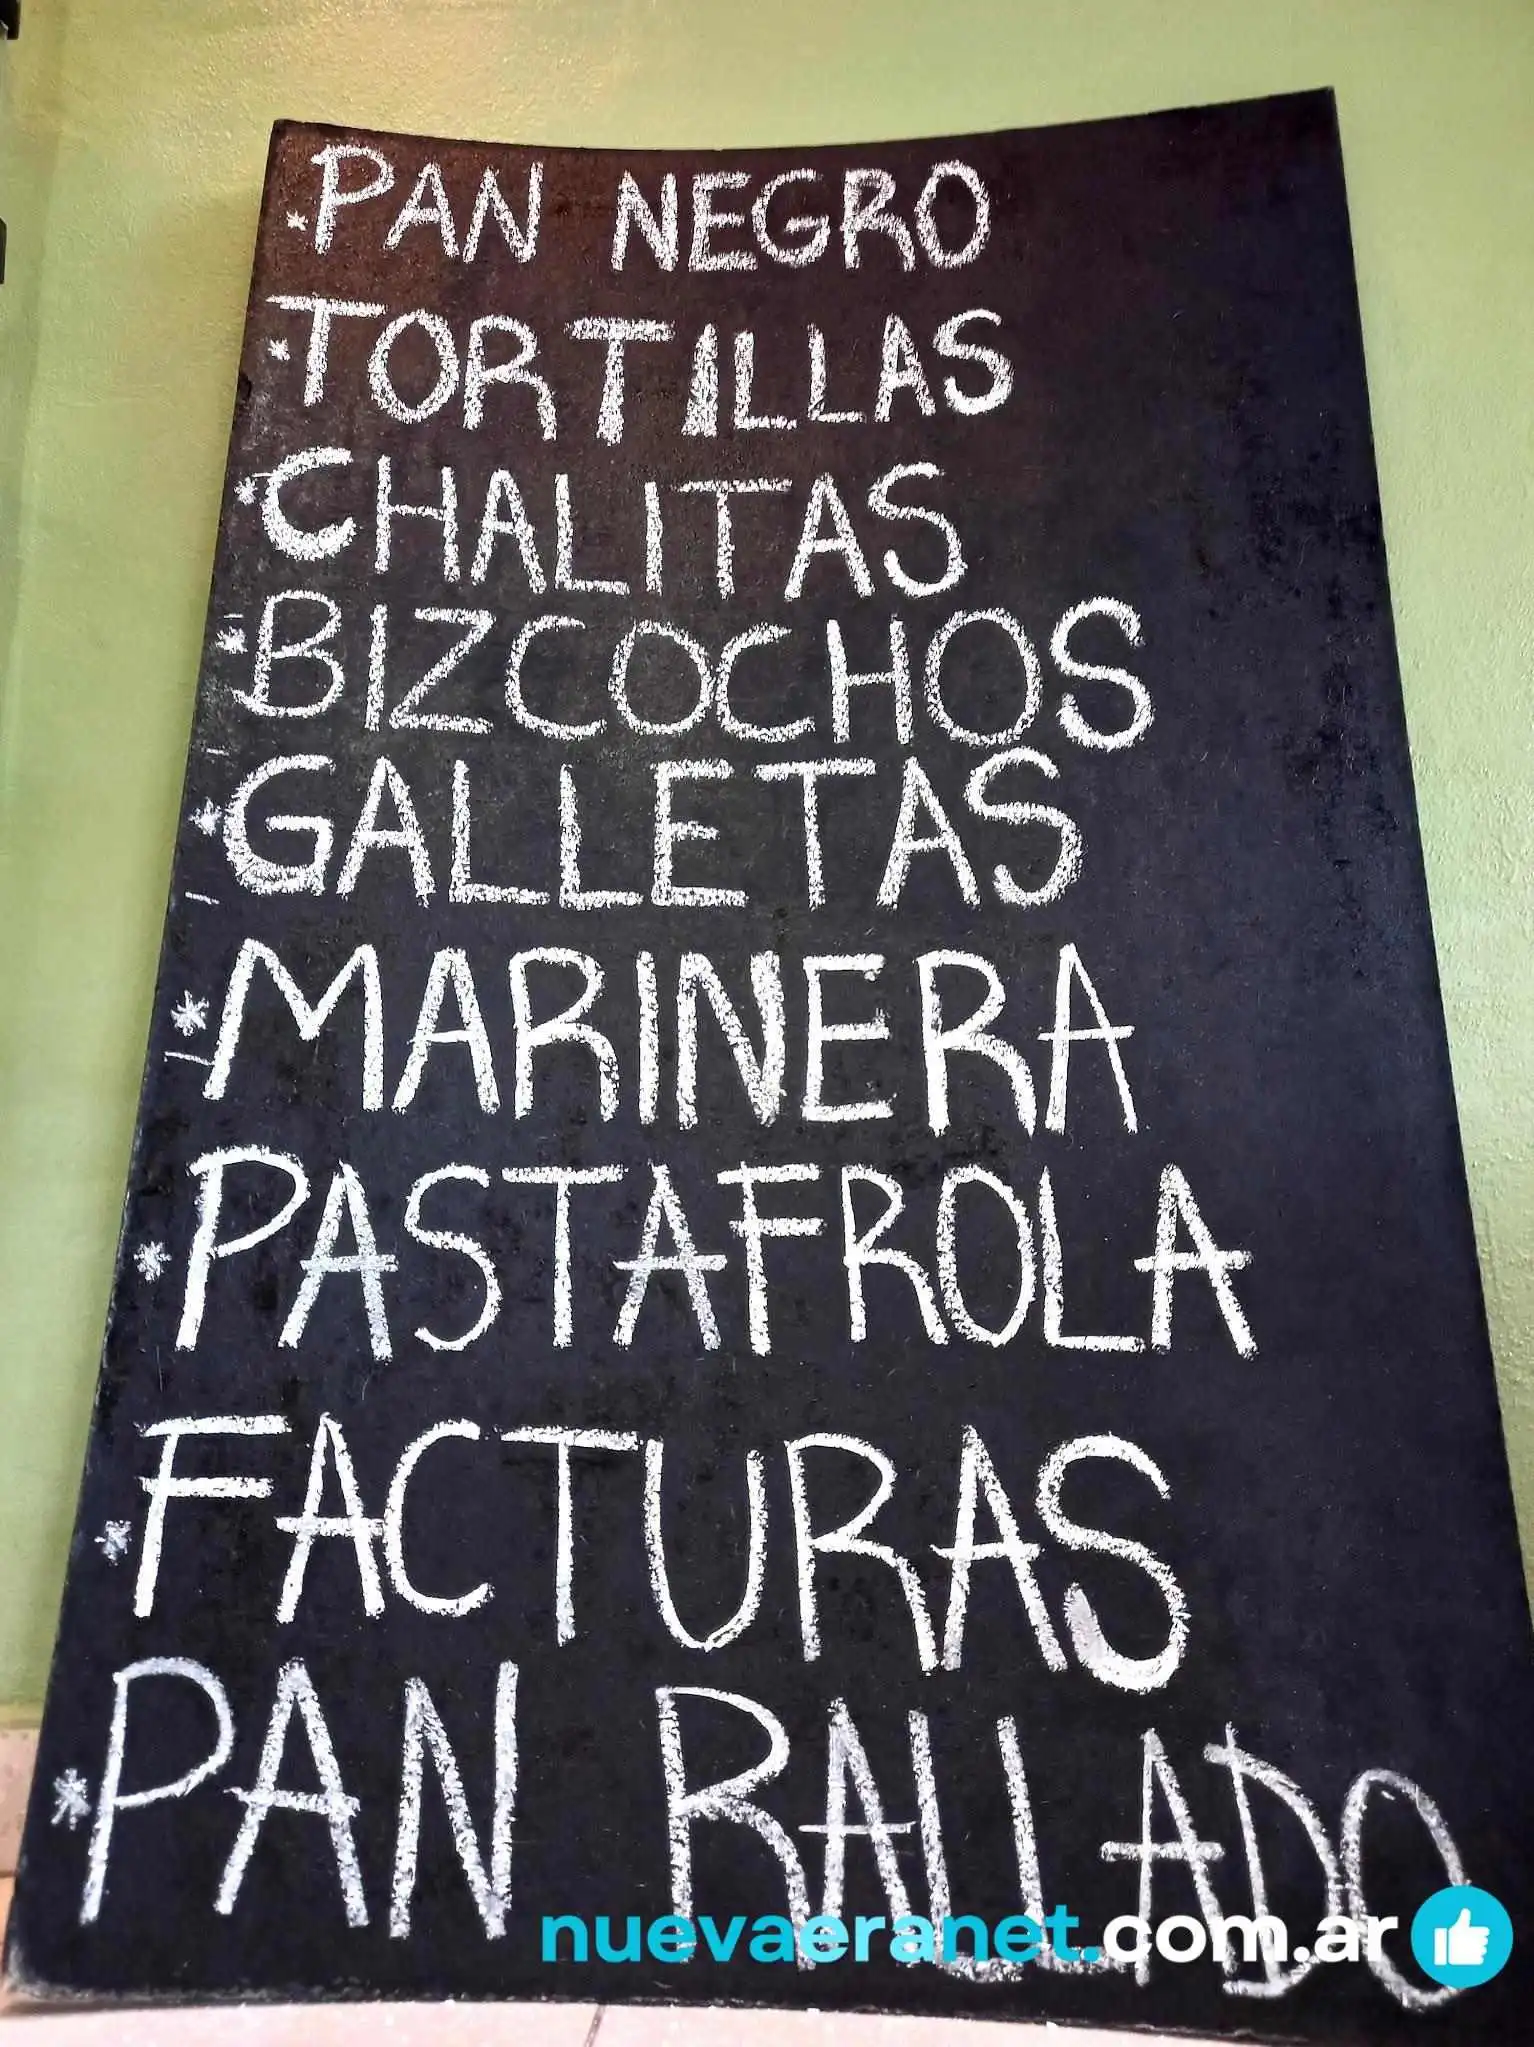 * PAN NEGRO
* TORTILLAS
* CHALITAS
* BIZCOCHOS
* GALLETAS
* MARINERA
* PASTAFROLA
* FACTURAS
* PAN RALLADO
nuevaeranet.com.ar